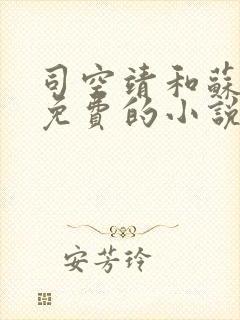 司空靖和蘇
免費的小說
安芳玲